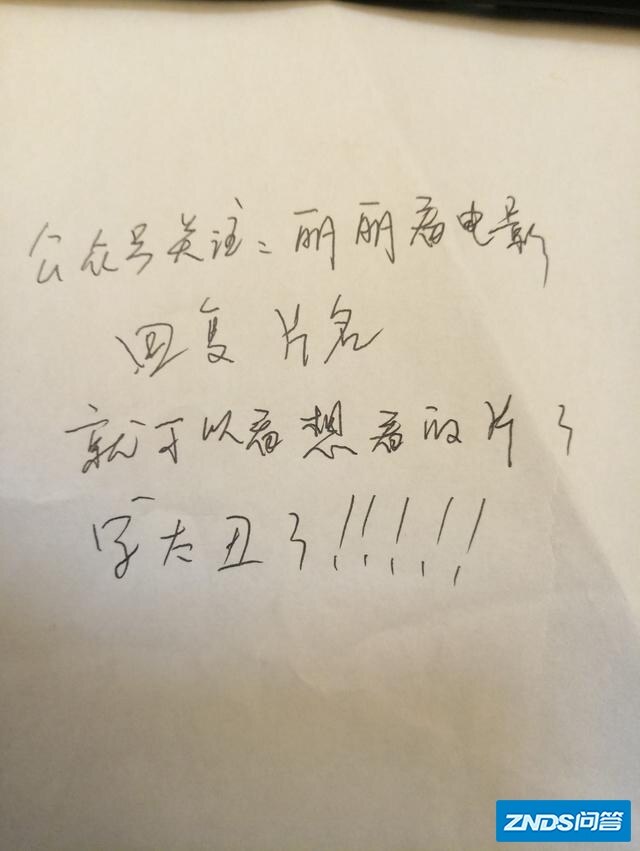 公众号关注：丽丽看电影
回复片名
就可以看想看的片了
字太丑了！！！！！
ZNDS问答